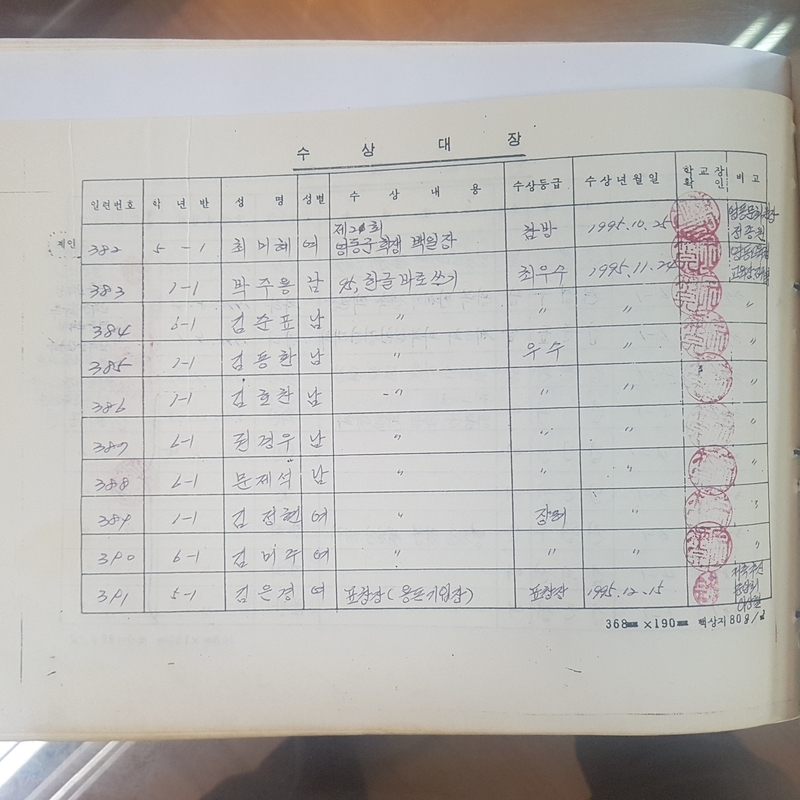 수 상 대 장
일련번호 학 년 반 성 명 성별 수 상 내 용 수상등급 수상년월일 학교장 확 인 비 고
제21회
382 5-1 최미혜 여 영동군 학생 백일장 참방 1995.10.25
383 1-1 박주용 남 95, 한글 바로쓰기 최우수 1995.11.24
384 6-1 김순표 남 〃 〃 〃 〃
385 1-1 김동환 남 〃 우수 〃 〃
386 1-1 김호찬 남 〃 〃 〃 〃
387 6-1 권경우 남 〃 〃 〃 〃
388 6-1 문제석 남 〃 〃 〃 〃
389 1-1 김정현 여 〃 장려 〃 〃
390 6-1 김미주 여 〃 〃 〃 〃
391 5-1 김은경 여 표창장(용돈기입장) 표창장 1995.12.15
368㎜ ×190㎜ 백상지 80g/㎡